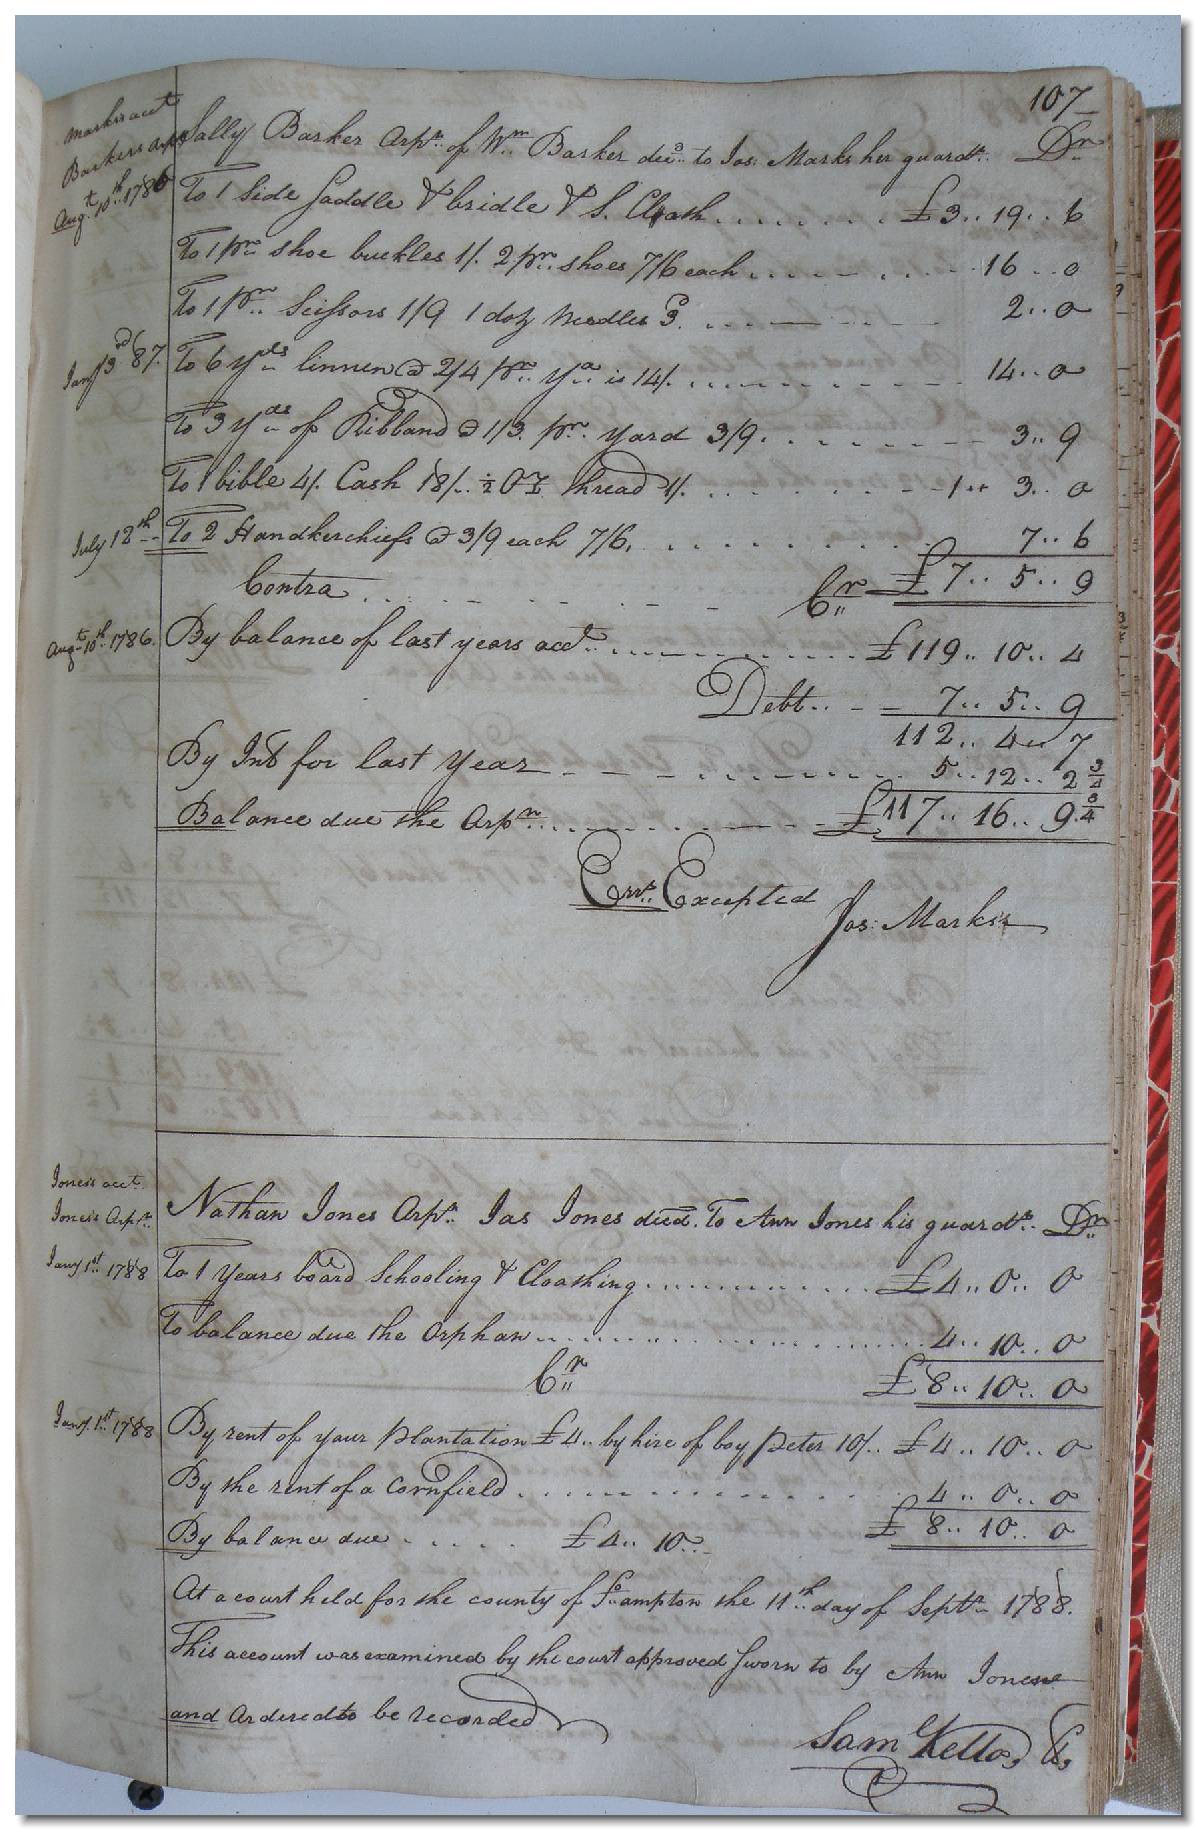 107
Marks's acct
Barkers Orpn
Sally Barker Orpn. of Wm. Barker decd. to Jos: Marks her guardn. Dr
Augt. 10th. 1786 To 1 Side Saddle & bridle & S. Cloath £3.. 19.. 6
To 1 pr. shoe buckles 1/. 2 pr. shoes 7/6 each 16.. 0
To 1 pr. Scissors 1/9 1 doz needles 3d. 2.. 0
Jany 3d 87. To 6 yds linnen @ 2/4 pr. yd. is 14/. 14.. 0
To 3 yds of Ribband @ 1/3. pr. yard 3/9. 3.. 9
To 1 bible 4/. Cash 18/.. ½ Oz thread 1/. 1.. 3.. 0
July 12th To 2 Handkerchiefs @ 3/9 each 7/6. 7.. 6
Contra Cr £7.. 5.. 9
Augt. 10th. 1786. By balance of last years acct. £119.. 10.. 4
Debt 7.. 5.. 9
112.. 4.. 7
By Int for last Year 5.. 12.. 2 3/4
Balance due the Orpn. £117.. 16.. 9 3/4
Errs. Excepted
Jos: Marks
Jones's acct.
Jones's Orpn.
Nathan Jones Orpn. Jas Jones decd. To Ann Jones his guardn. Dr
Jany 1st. 1788 To 1 Years board Schooling & Cloathing £4.. 0.. 0
To balance due the Orphan 4.. 10.. 0
Cr £8.. 10.. 0
Jany. 1st 1788 By rent of your plantation £4.. by hire of boy Peter 10/.. £4.. 10.. 0
By the rent of a Cornfield 4.. 0.. 0
£8.. 10.. 0
By balance due £4.. 10..
At a court held for the county of So.ampton the 11th. day of Septr. 1788.
This account was examined by the court approved Sworn to by Ann Jones
and Ordered to be recorded
Sam Kello, C